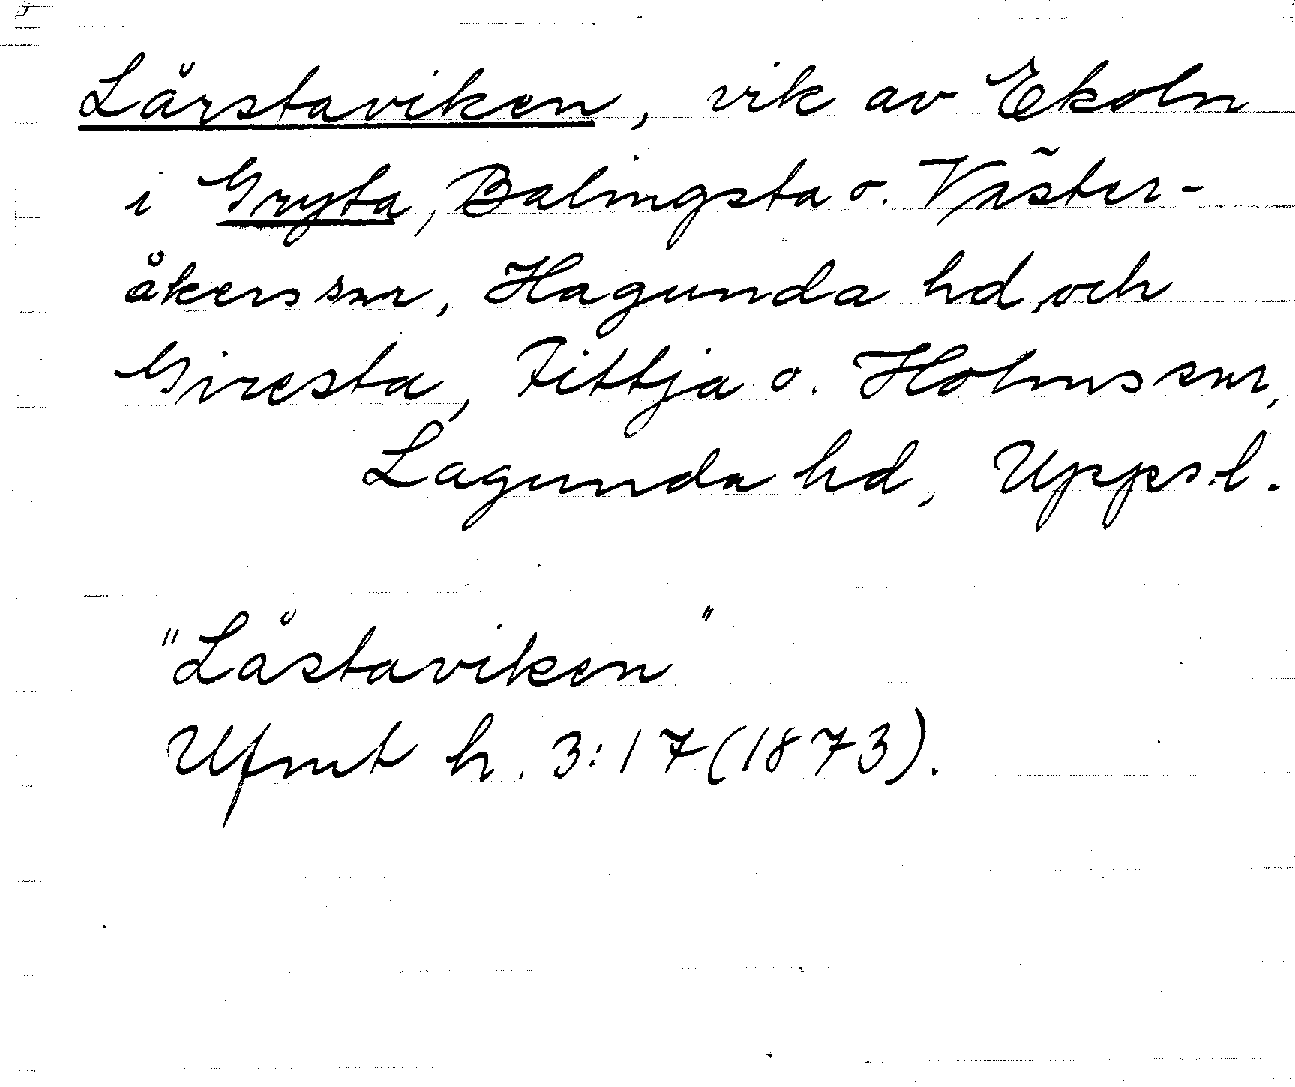 Lårstaviken, vik av Ekoln
i Gryta, Balingsta o. Väster-
åkers snr, Hagunda hd, och
Giresta, Fittja o. Holms snr,
Lagunda hd, Uppsl.
"Låstaviken"
Ufmt h. 3:17 (1873).